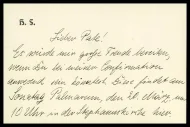 H. S.
Lieber Pate!
Es würde mir große Freude bereiten,
wenn Du bei meiner Confirmation
anwesend sein könntest. Diese findet am
Sonntag Palmarum, den 20. März, um
10 Uhr in der Stephanuskirche